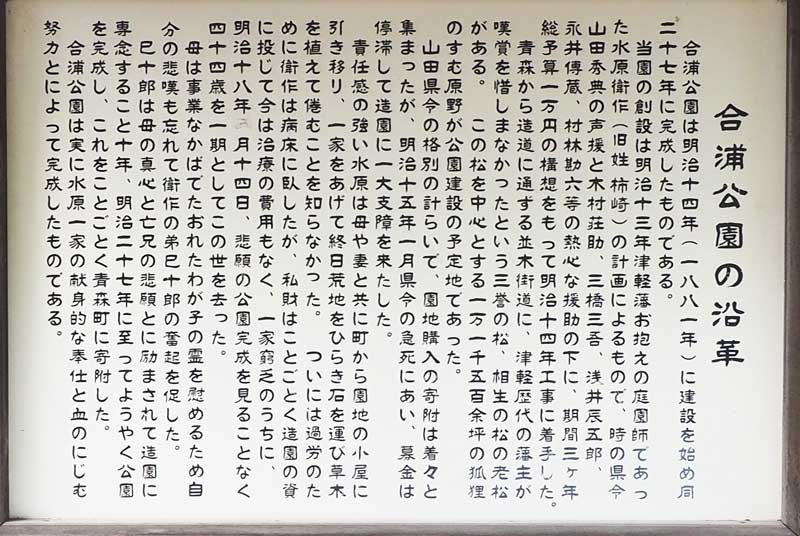 合浦公園の沿革
合浦公園は明治十四年(一八八一年)に建設を始め同
二十七年に完成したものである。
当園の創設は明治十三年津軽藩お抱えの庭園師であっ
た水原衛作(旧姓 柿崎)の計画によるもので、時の県令
山田秀典の声援と木村荘助、三橋三吾、浅井辰五郎、
永井傳蔵、村林勘六等の熱心な援助の下に、期間三ヶ年
総予算一万円の構想をもって明治十四年工事に着手した。
青森から造道に通ずる並木街道に、津軽歴代の藩主が
嘆賞を惜しまなかったという三誉の松、相生の松の老松
がある。 この松を中心とする一万一千五百余坪の狐狸
のすむ原野が公園建設の予定地であった。
山田県令の格別の計らいで、園地購入の寄附は着々と
集まったが、明治十五年一月県令の急死にあい、募金は
停滞して造園に一大支障を来たした。
責任感の強い水原は母や妻と共に町から園地の小屋に
引き移り、一家をあげて終日荒地をひらき石を運び草木
を植えて倦むことを知らなかった。 ついには過労のた
めに衛作は病床に臥したが、私財はことごとく造園の資
に投じて今は治療の費用もなく、一家窮乏のうちに、
明治十八年 月十四日、悲願の公園完成を見ることなく
四十四歳を一期としてこの世を去った。
母は事業なかばでたおれたわが子の霊を慰めるため自
分の悲嘆も忘れて衛作の弟巳十郎の奮起を促した。
巳十郎は母の真心と亡兄の悲願とに励まされて造園に
専念すること十年、明治二十七年に至ってようやく公園
を完成し、これをことごとく青森町に寄附した。
合浦公園は実に水原一家の献身的な奉仕と血のにじむ
努力とによって完成したものである。